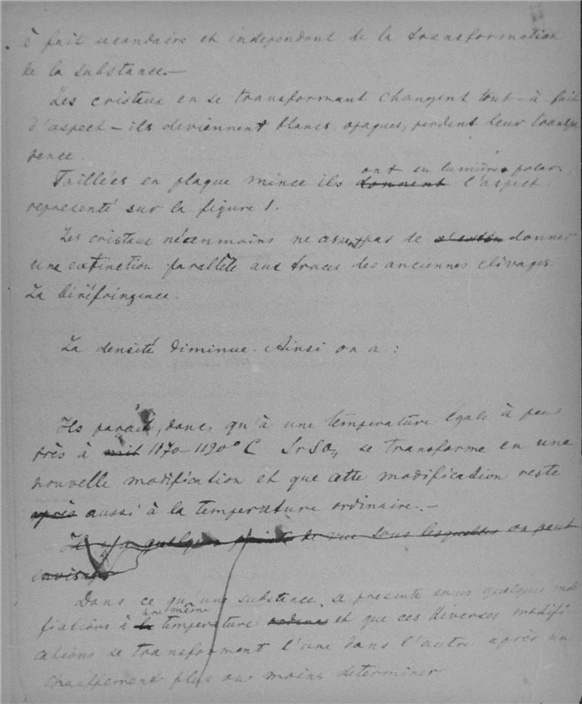 à fait secondaire et independant de la transformation
de la substance.—
Les cristaux en se transformant changent tout-à fait
d'aspect – ils deviennent blancs, opaques, perdent leur transpa
rence.
ont en lumière polar.
Taillées en plaque mince ils donnent l'aspect
representé sur la figure 1.
Les cristaux néanmoins ne cessent pas de donner
une extinction parallèle aux traces des anciennes clivages
La biréfringence.
La densité diminue. Ainsi on a :
Ils parait, donc, qu'à une temperature égale à peu
près à mil 1170–1190° C SrSO4 se transforme en une
nouvelle modification et que cette modification reste
après aussi à la temperature ordinaire.—
Il y a quelques points de vue sous lesquelles on peut
envisager
Dans ce qu'une substance se presente sous quelques modi
une même
fications à la temperature et que ces diverses modifi
cations de transforment l'une dans l'autre après un
chauffement plus ou moins determiner